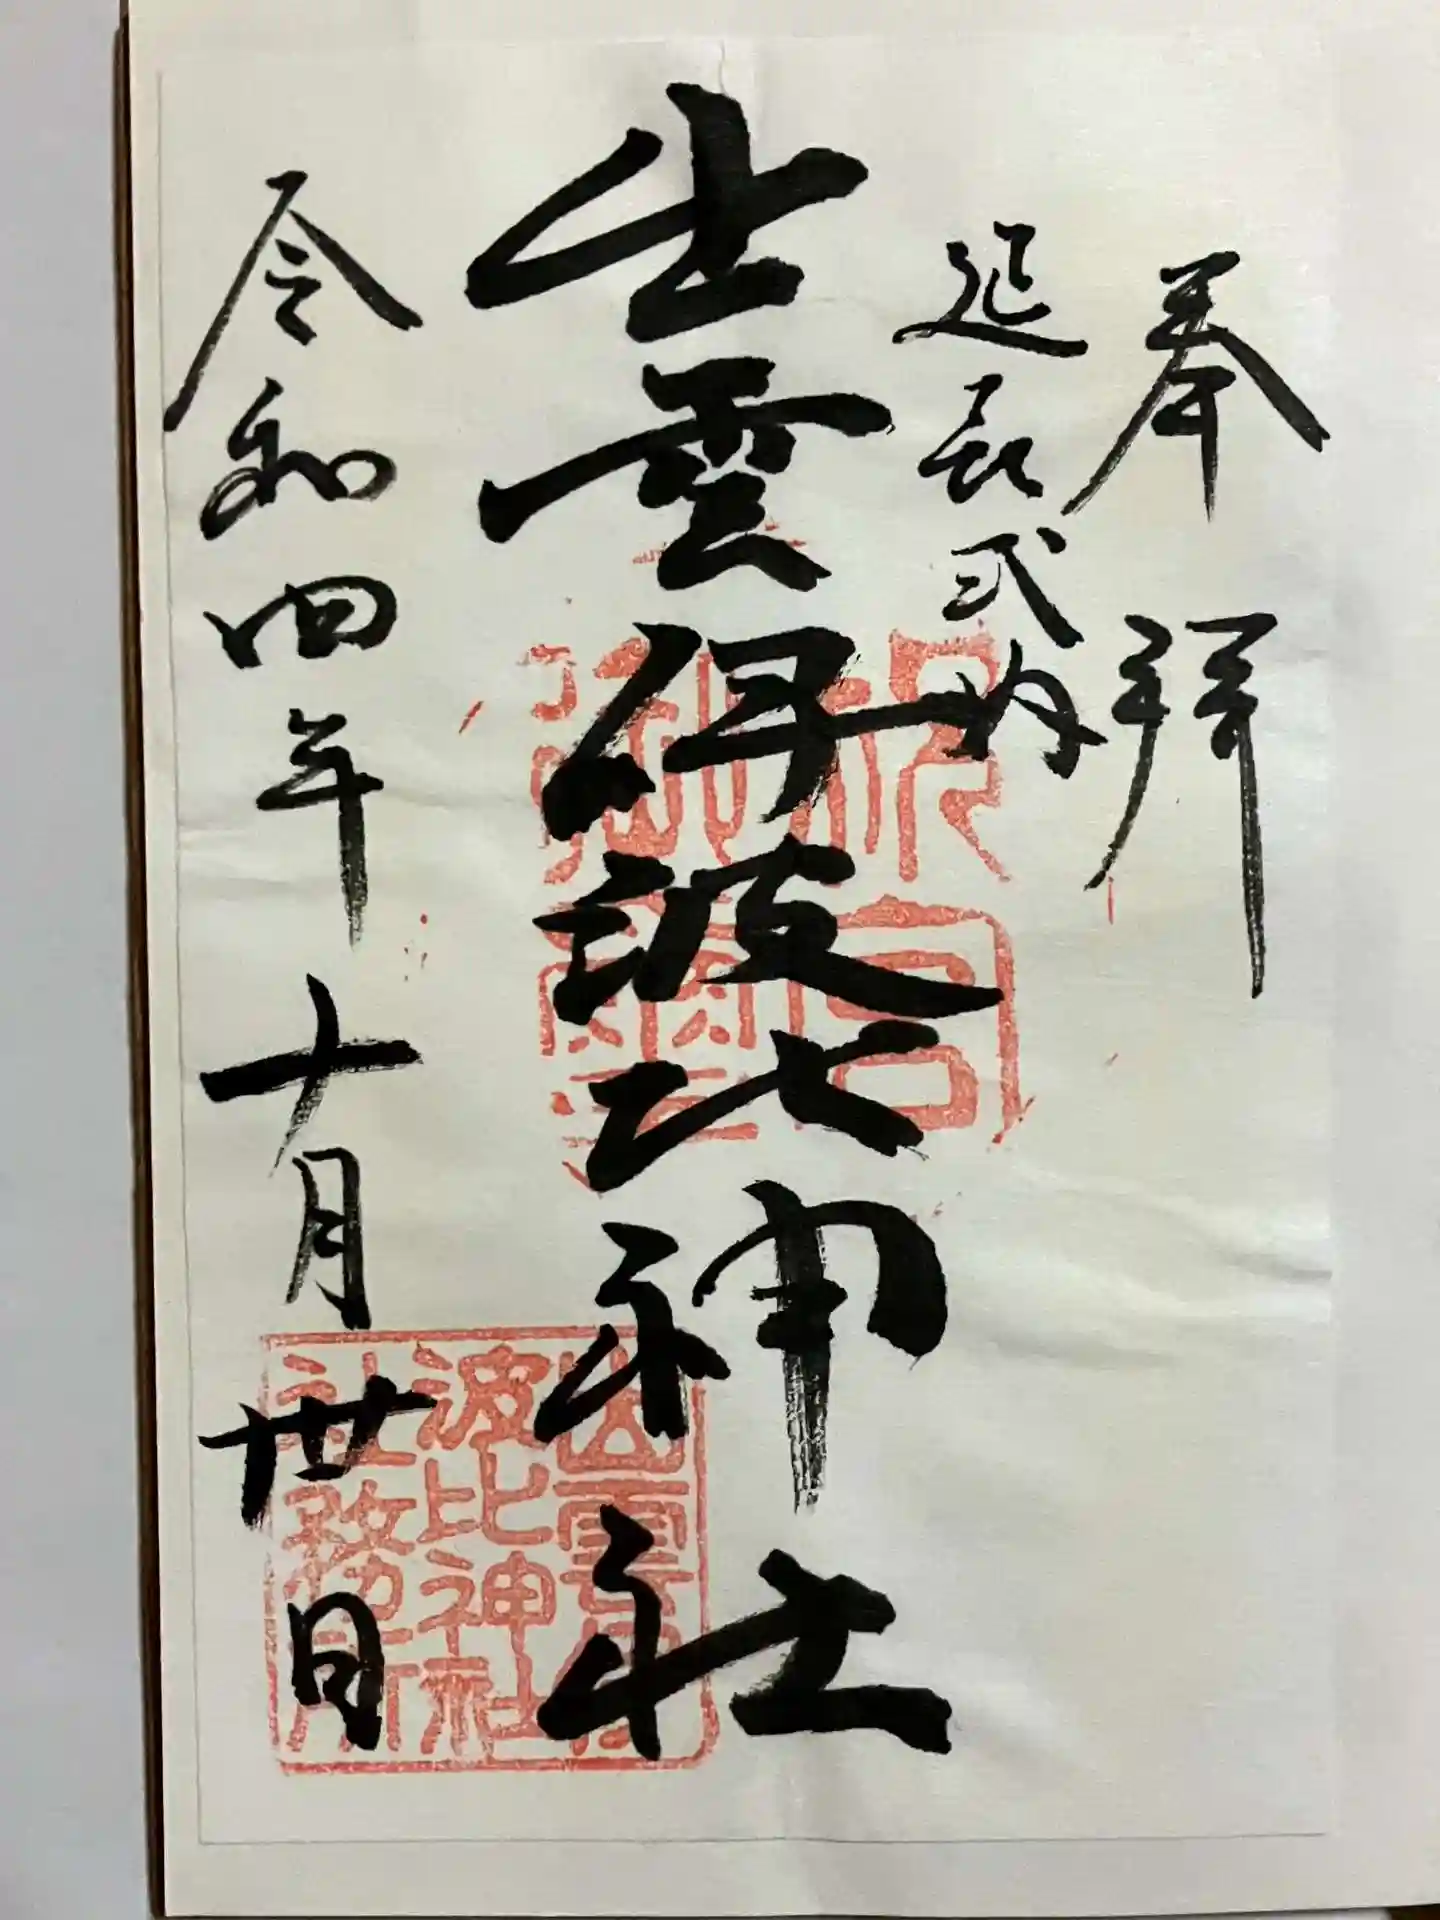 奉拝
延喜式内
出雲伊波比神社
令和四年十月丗日
出雲伊
波比神社
社務所